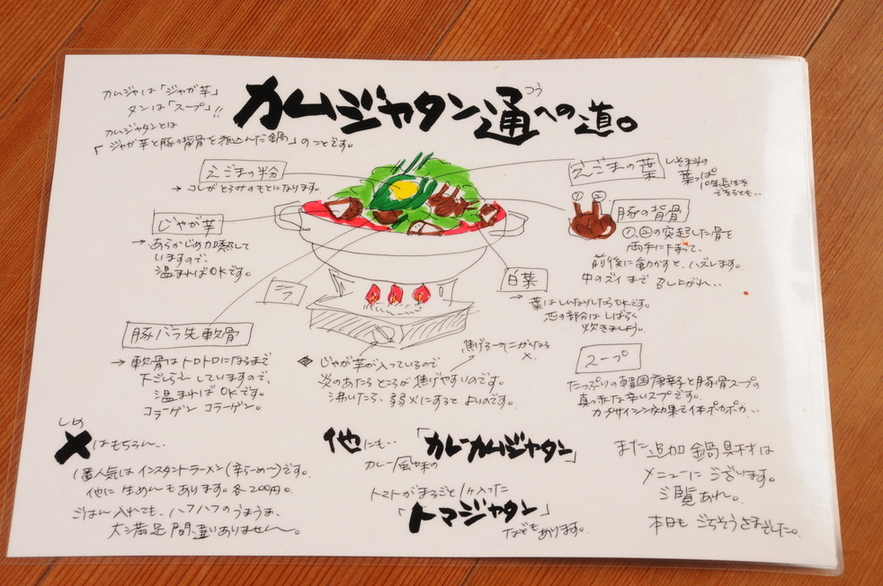 カムジャは「ジャガ芋」
タンは「スープ」!!
カムジャタンとは
「ジャガ芋と豚の背骨を煮込んだ鍋」のことです。
カムジャタン通への道。
つう
えごまの粉
→ コレがとろみのもとになります。
じゃが芋
→ あらかじめ加熱して
いますので、
温まればOKです。
ニラ
豚バラ先軟骨
→ 軟骨はトロトロになるまで
下ごしらえしていますので、
温まればOKです。
コラーゲン コラーゲン。
えごまの葉
しそ科の
葉っぱ
豚の背骨
①、②の突起した骨を
両手に持って、
前後に動かすと、ハズレます。
中のズイまで召し上がれ…
白菜
→ 葉はしんなりしたらOKです。
芯の部分はしばらく
炊きましょう。
スープ
たっぷりの韓国唐辛子と豚骨スープの
真っ赤な辛いスープです。
カプサイシン効果で体ポカポカ…
じゃが芋が入っているので
炎のあたるところが焦げやすいのです。
沸いたら、弱火にするとよいのです。
しめ
〆はもちろん…
1番人気はインスタントラーメン(辛らーめん)です。
他に生めんもあります。各200円。
ごはん入れても、ハフハフのうまうま、
大満足間違いありませーん。
他にも…
カレー風味の
「カレーカムジャタン」
トマトがまるごと1ヶ入った
「トマジャタン」
などもあります。
また追加鍋具材は
メニューにございます。
ご覧あれ。
本日もごちそうさまでした。